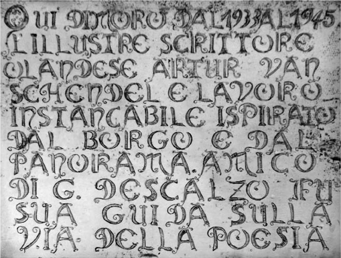 QUI DIMORÒ DAL 1933 AL 1945
L'ILLUSTRE SCRITTORE
OLANDESE ARTUR VAN
SCHENDEL E LAVORO
INSTANCABILE ISPIRATO
DAL BORGO E DAL
PANORAMA. AMICO
DI G. DESCALZO FU
SUA GUIDA SULLA
VIA DELLA POESIA